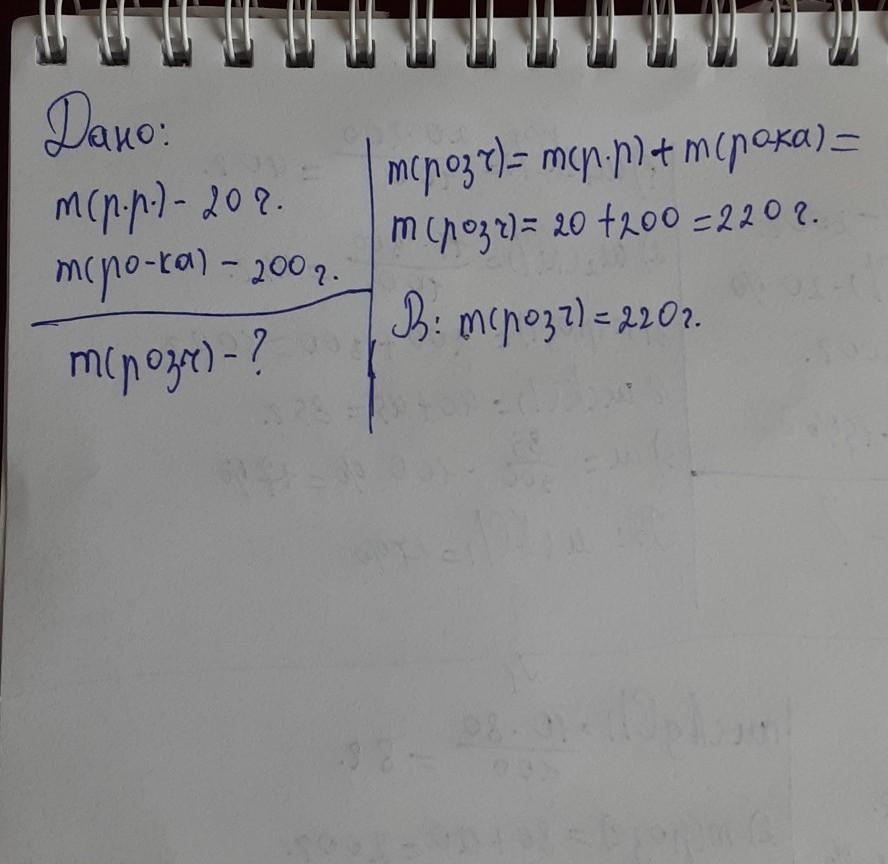 Дано:
m(р.р.) - 20 г.
m(ро-ка) - 200 г.
m(розч) - ?
m(розч) = m(р.р) + m(рока) =
m(розч) = 20 + 200 = 220 г.
В: m(розч) = 220 г.